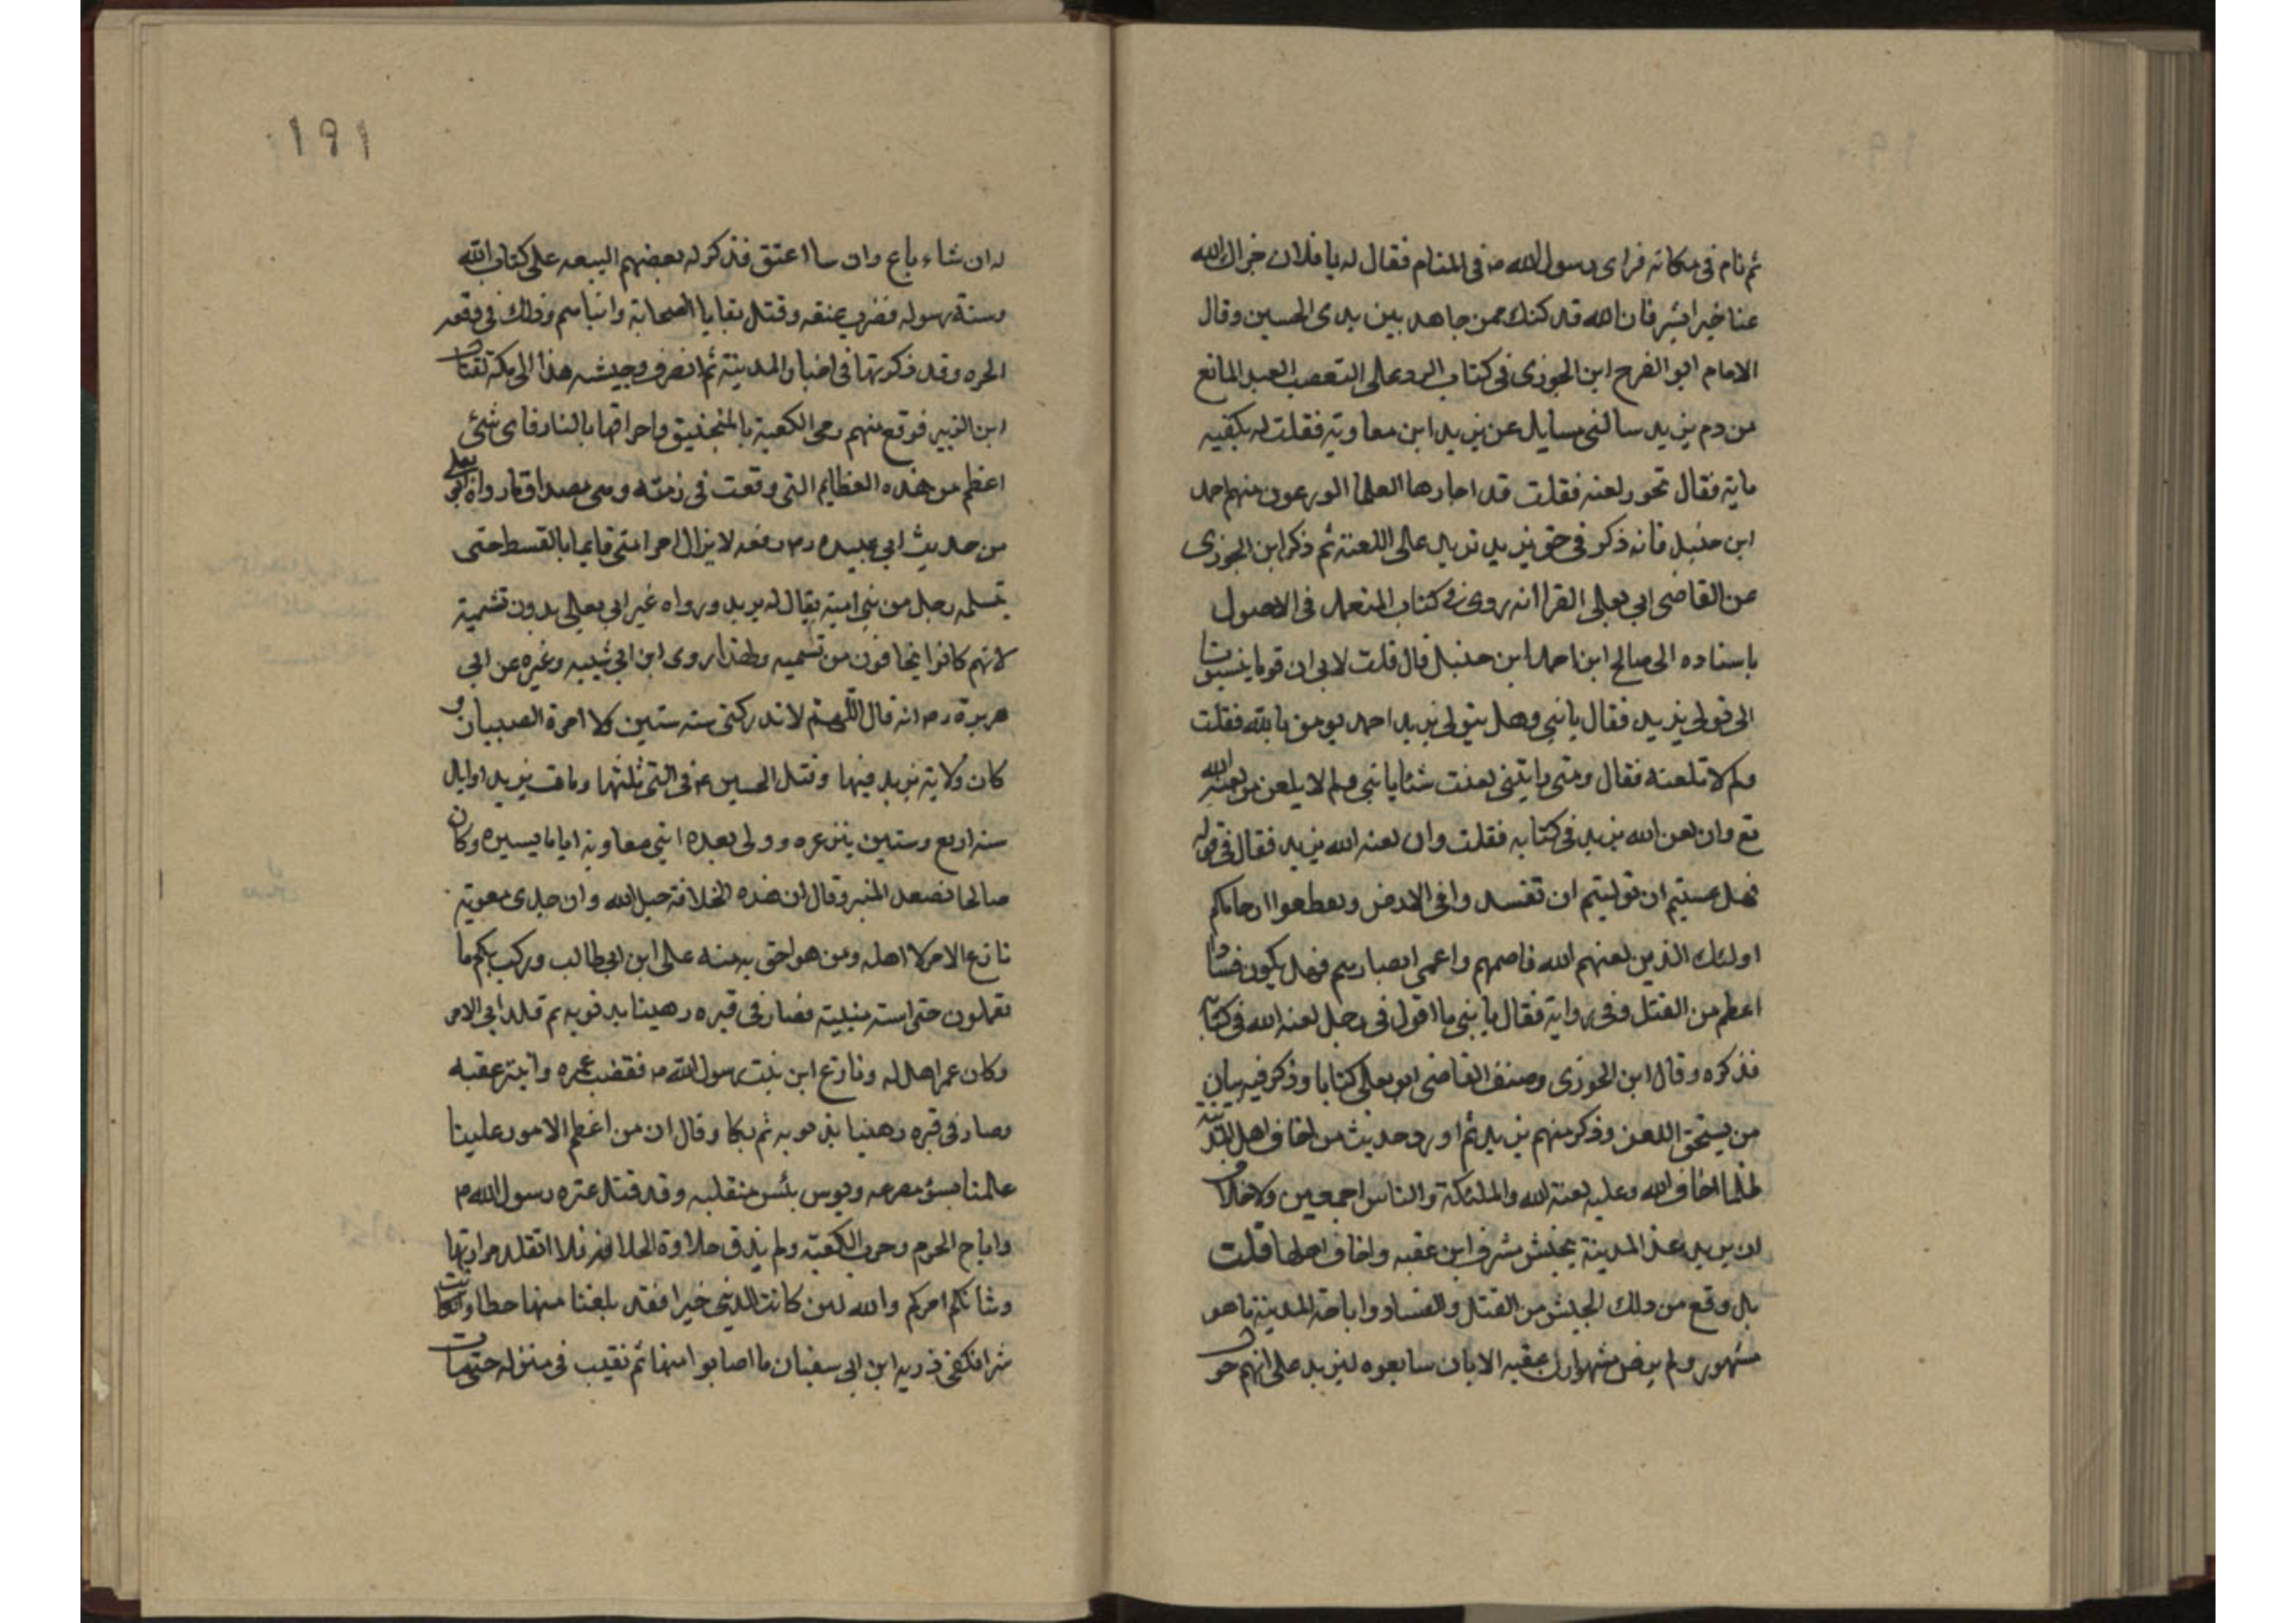 ثم نام في مكانه فراى رسول الله ص في المنام فقال له يا فلان جزاك الله
عنا خيرا ابشر فان الله قد كتبك ممن جاهد بين يدى الحسين وقال
الامام ابو الفرج ابن الجوزى في كتاب الرد على التعصب العبد المانع
من دم يزيد سالني سايل عن يزيد ابن معاوية فقلت له يكفيه
مابه فقال تجوز لعنه فقلت قد اجازها العلما الورعون منهم احمد
ابن حنبل فانه ذكر في حق يزيد يزيد على اللعنة ثم ذكر ابن الجوزى
عن القاضى ابى يعلى الفرا انه روى في كتاب المتعمد في الاصول
باسناده الى صالح ابن احمد ابن حنبل قال قلت لابى ان قوما ينسبونا
الى تولى يزيد فقال يا بني وهل يتولى يزيد احد يومن بالله فقلت
ولم لا تلعنه فقال ومتى رايتنى لعنت شئا يا بني ولم لا يلعن من لعنه الله
تع وان لعن الله يزيد في كتابه فقلت واين لعنه الله يزيد فقال في قوله
فهل عسيتم ان توليتم ان تفسدوا فى الارض وتقطعوا ارحامكم
اولئك الذين لعنهم الله فاصمهم واعمى ابصارهم فهل يكون فسادا
اعظم من القتل وفى رواية فقال يا بنى ما اقول فى رجل لعنه الله فى كتابه
فذكره وقال ابن الجوزى وصنف القاضى ابو يعلى كتابا وذكر فيه بيان
من يستحق اللعن وذكر منهم يزيد ثم اورد حديث من اخاف اهل المدينة
ظلما اخاف الله وعليه لعنة الله والملئكة والناس اجمعين ولا خلاف
ان يزيد غذ المدينة بجيش مشرف ابن عقبه واخاف اهلها قلت
بل وقع من ذلك الجيش من القتل والفساد واباحة المدينة ما هو
مشهور ولم يرض مشهوارن عقبه الا بان سايعوه ليزيد على انهم خول
۱۹۱
له ان شاء باع وان سا اعتق فذكر له بعضهم البيعه على كتاب الله
وسنة رسوله فضرب عنقه وقتل بقايا الصحابة وابناهم وذلك في وقعه
الحره وقد ذكرتها فى اخبار المدينة ثم انصرف وجيشه هذا الى مكة لقتال
ابن الزبير فوقع منهم رمى الكعبة بالمنجنيق واحراقها بالنار فاى شئ
اعظم من هذه العظايم التى وقعت فى زمنه وهى مصداق ما رواه ابو يعلى
من حديث ابى عبيده رض رفعه لا يزال امر امتى قايما بالقسط حتى
يثلمه رجل من بنى امية يقال له يزيد ورواه غير ابى يعلى بدون تسمية
لانهم كانوا يخافون من تسميه ولهذا روى ابن ابى شيبه وغيره عن ابى
هريرة رض انه قال اللهم لا تدركنى سنه ستين ولا امرة الصبيان و
كان ولاية يزيد فيها وقتل الحسين ع فى التى ثلثها ومات يزيد اوايل
سنه اربع وستين وولى بعده ابنى معاوية اياما يسيره وكان
صالحا فصعد المنبر وقال ان هذه الخلافة حبل الله وان جدى معوية
نازع الامر لا اهله ومن هو احق به منه على ابن ابى طالب وركب بكم ما
تعملون حتى اتته منيته فصار فى قبره رهينا بذنوبه ثم قلد ابى الامر
وكان غير اهل له ونازع ابن بنت رسول الله ص فقضب عمره وانبتر عقبه
وصار فى قبره رهينا بذنوبه ثم بكا وقال ان من اعظم الامور علينا
علمنا بسؤ مصرعه وبوس بئس منقلبه وقد قتل عتره رسول الله ص
واباح الحرم وحرب الكعبة ولم يذق حلاوة الخلافة فلا اتقلد مرارتها
وشانكم امركم والله لئن كانت الدنيى خيرا فقد بلغنا منها حظا ولئن كانت
شرا فكفى ذريه ابن ابى سفيان ما اصابوا منها ثم تغيب فى منزله حتى مات